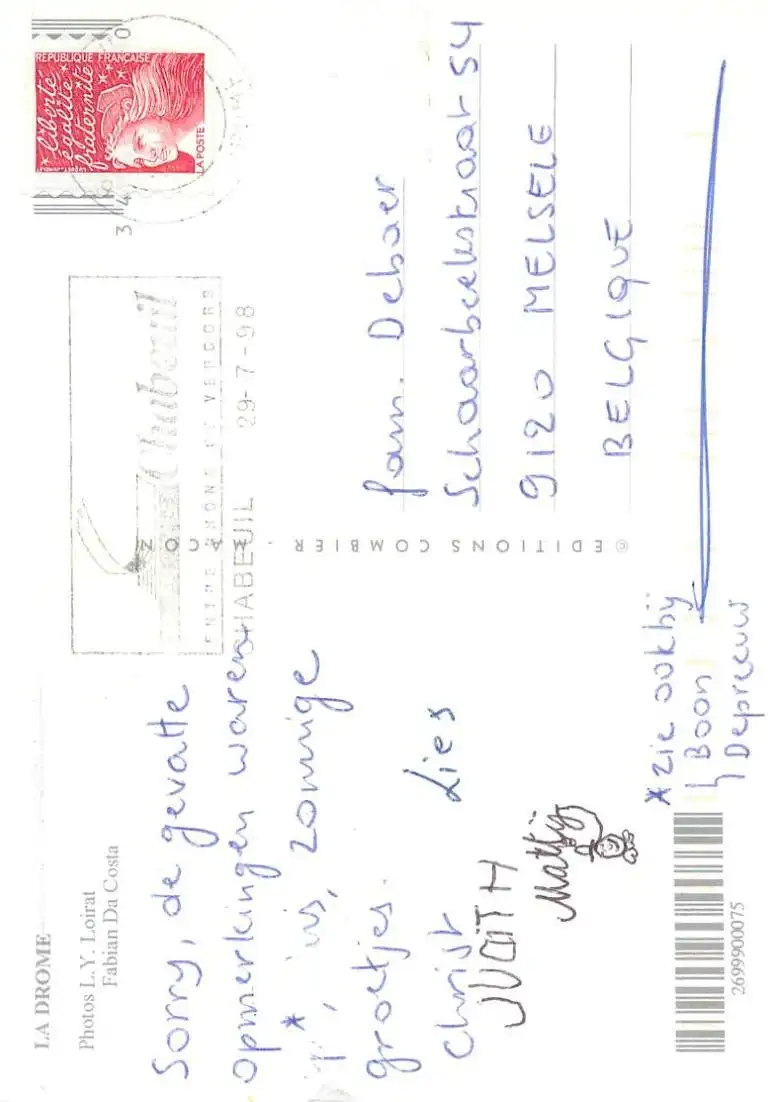 LA DROME
Photos L.Y. Loirat
Fabian Da Costa
Sorry, de gevatte
opmerkingen waren
*
zonnige
groetjes.
Christ
Lies
JUDITH
Mattij
* zie ook bij
Boon
Depreeuw
2699900075
© EDITIONS COMBIER - MACON
Chabeuil
ENTRE RHONE ET VERCORS
CHABEUIL 29-7-98
RÉPUBLIQUE FRANÇAISE
liberté
égalité
fraternité
LA POSTE
fam. Debaer
Schaarbeekstraat 54
9120 MELSELE
BELGIQUE